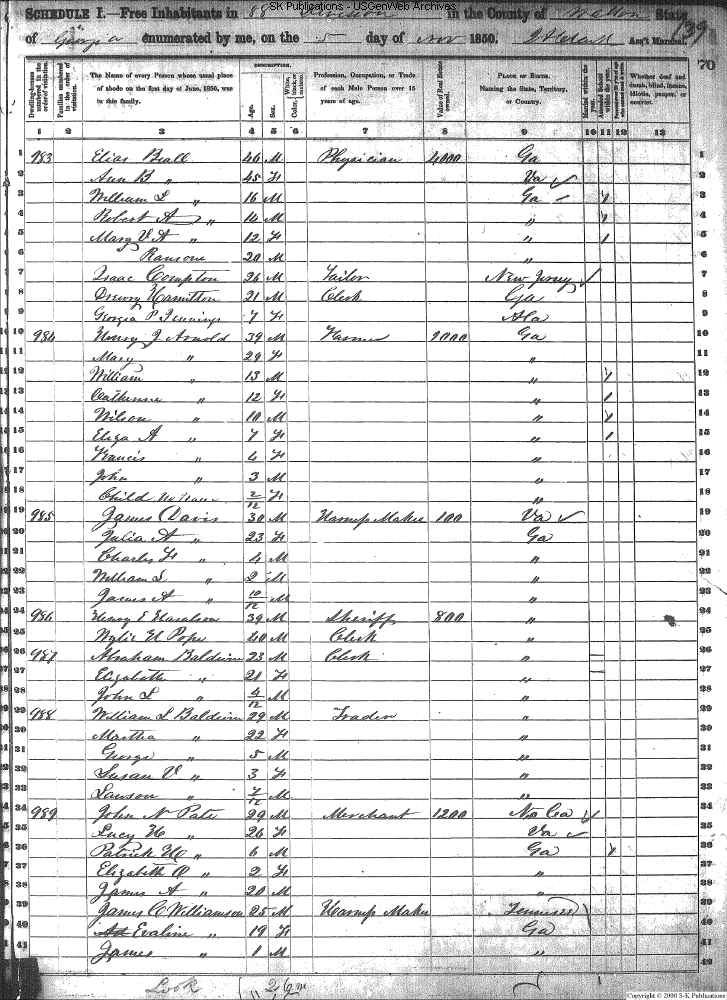 SK Publications - USGenWeb Archives
SCHEDULE I.—Free Inhabitants in 88 Division in the County of Walton State
of Georgia enumerated by me, on the 5 day of Nov 1850. Ass't Marshal.
70
Dwelling-houses numbered in the order of visitation.
Families numbered in the order of visitation.
The Name of every Person whose usual place of abode on the first day of June, 1850, was in this family.
DESCRIPTION.
Age.
Sex.
White, black, or mulatto.
Color,
Profession, Occupation, or Trade of each Male Person over 15 years of age.
Value of Real Estate owned.
PLACE OF BIRTH. Naming the State, Territory, or Country.
Married within the year.
Attended School within the year.
Whether deaf and dumb, blind, insane, idiotic, pauper, or convict.
1 2 3 4 5 6 7 8 9 10 11 12 13
1 983 Elias Beall 46 M Physician 4000 Ga 1
2 Ann B " 45 F Va ✓ 2
3 William L " 16 M Ga 1 3
4 Robert A " 14 M " 1 4
5 Mary V A " 12 F " 1 5
6 Ransone 20 M " 6
7 Isaac Compton 26 M Tailor New Jersey ✓ 7
8 Drewry Hamilton 21 M Clerk Ga 8
9 Georgia P Jennings 7 F Ala 9
10 984 Henry J Arnold 39 M Farmer 1000 Ga 10
11 Mary " 29 F " 11
12 William " 13 M " 1 12
13 Catherine " 12 F " 1 13
14 Wilson " 10 M " 1 14
15 Eliza A " 7 F " 1 15
16 Francis " 4 F " 16
17 John " 3 M " 17
18 Child no name 2/12 F " 18
19 985 James Davis 30 M Harness Maker 100 Va ✓ 19
20 Julia A " 23 F Ga 20
21 Charles H " 4 M " 21
22 William L " 2 M " 22
23 James A " 10/12 M " 23
24 986 Henry E Haralson 39 M Sheriff 800 " 24
25 Wylie H Pope 40 M Clerk " 25
26 987 Abraham Baldwin 23 M Clerk " 26
27 Elizabeth " 21 F " 27
28 John L " 4/12 M " 28
29 988 William S Baldwin 29 M Trader " 29
30 Martha " 22 F " 30
31 George " 5 M " 31
32 Susan V " 3 F " 32
33 Lawson " 7/12 M " 33
34 989 John N Pate 29 M Merchant 1200 No Ca ✓ 34
35 Lucy H " 26 F Va ✓ 35
36 Patrick H " 6 M Ga 1 36
37 Elizabeth " 2 F " 37
38 James A " 20 M " 38
39 James C Williamson 25 M Harness Maker Tennessee 39
40 Evaline " 19 F Ga 40
41 James " 1 M "
Look 26 m
Copyright © 2000 S-K Publications